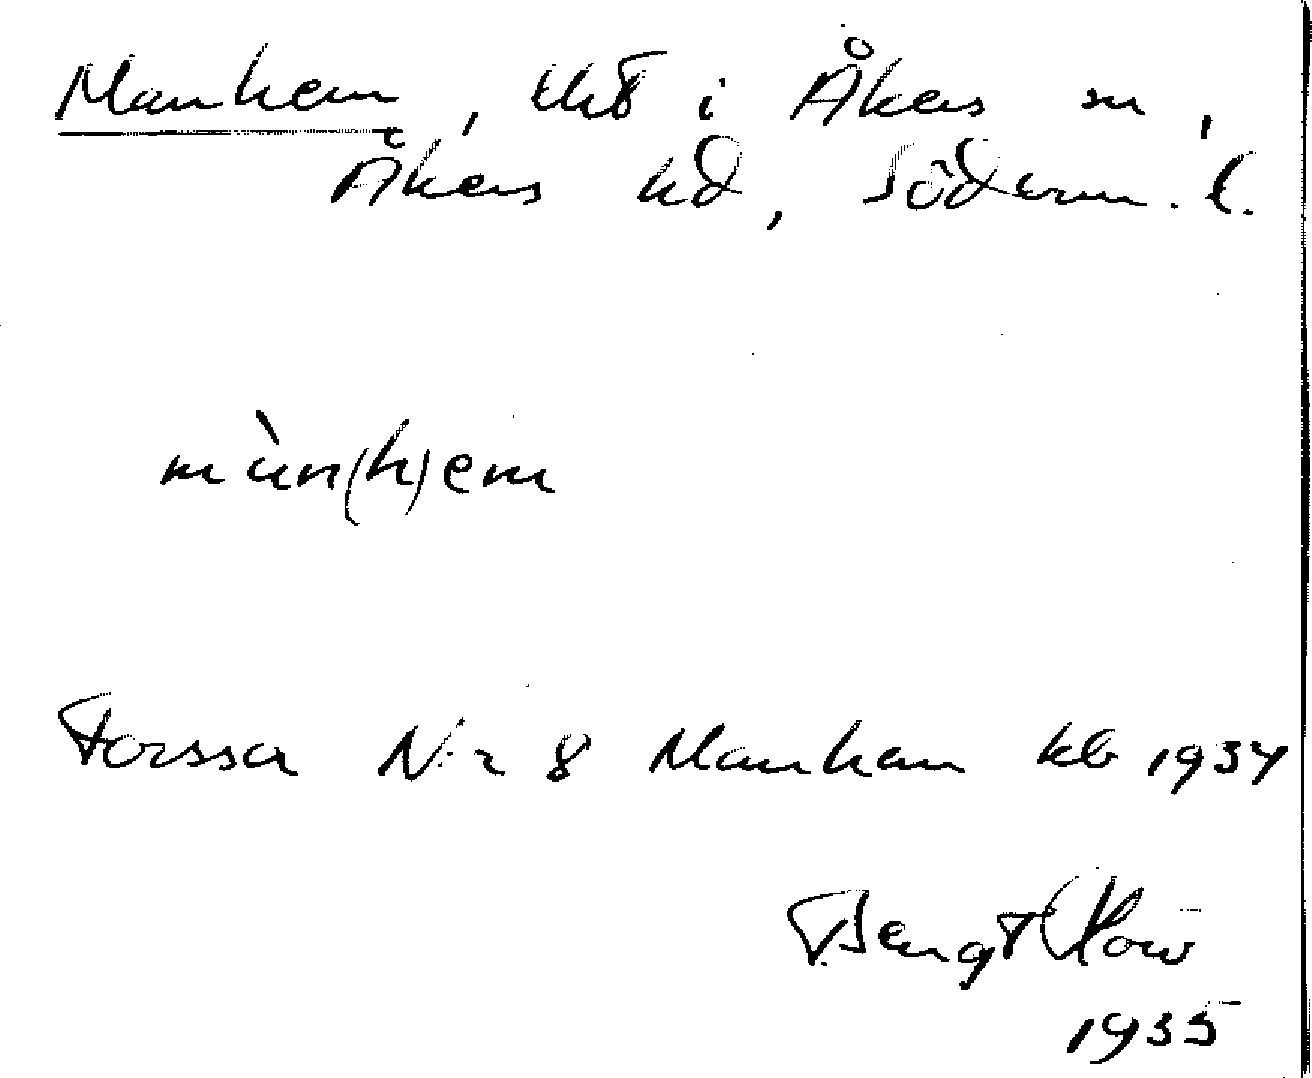 Manhem, i Åkers sn,
Åkers hd, Söderm. l.
màn(h)em
Forssa N:r 8 Manhem kb 1934
Bengt
1935